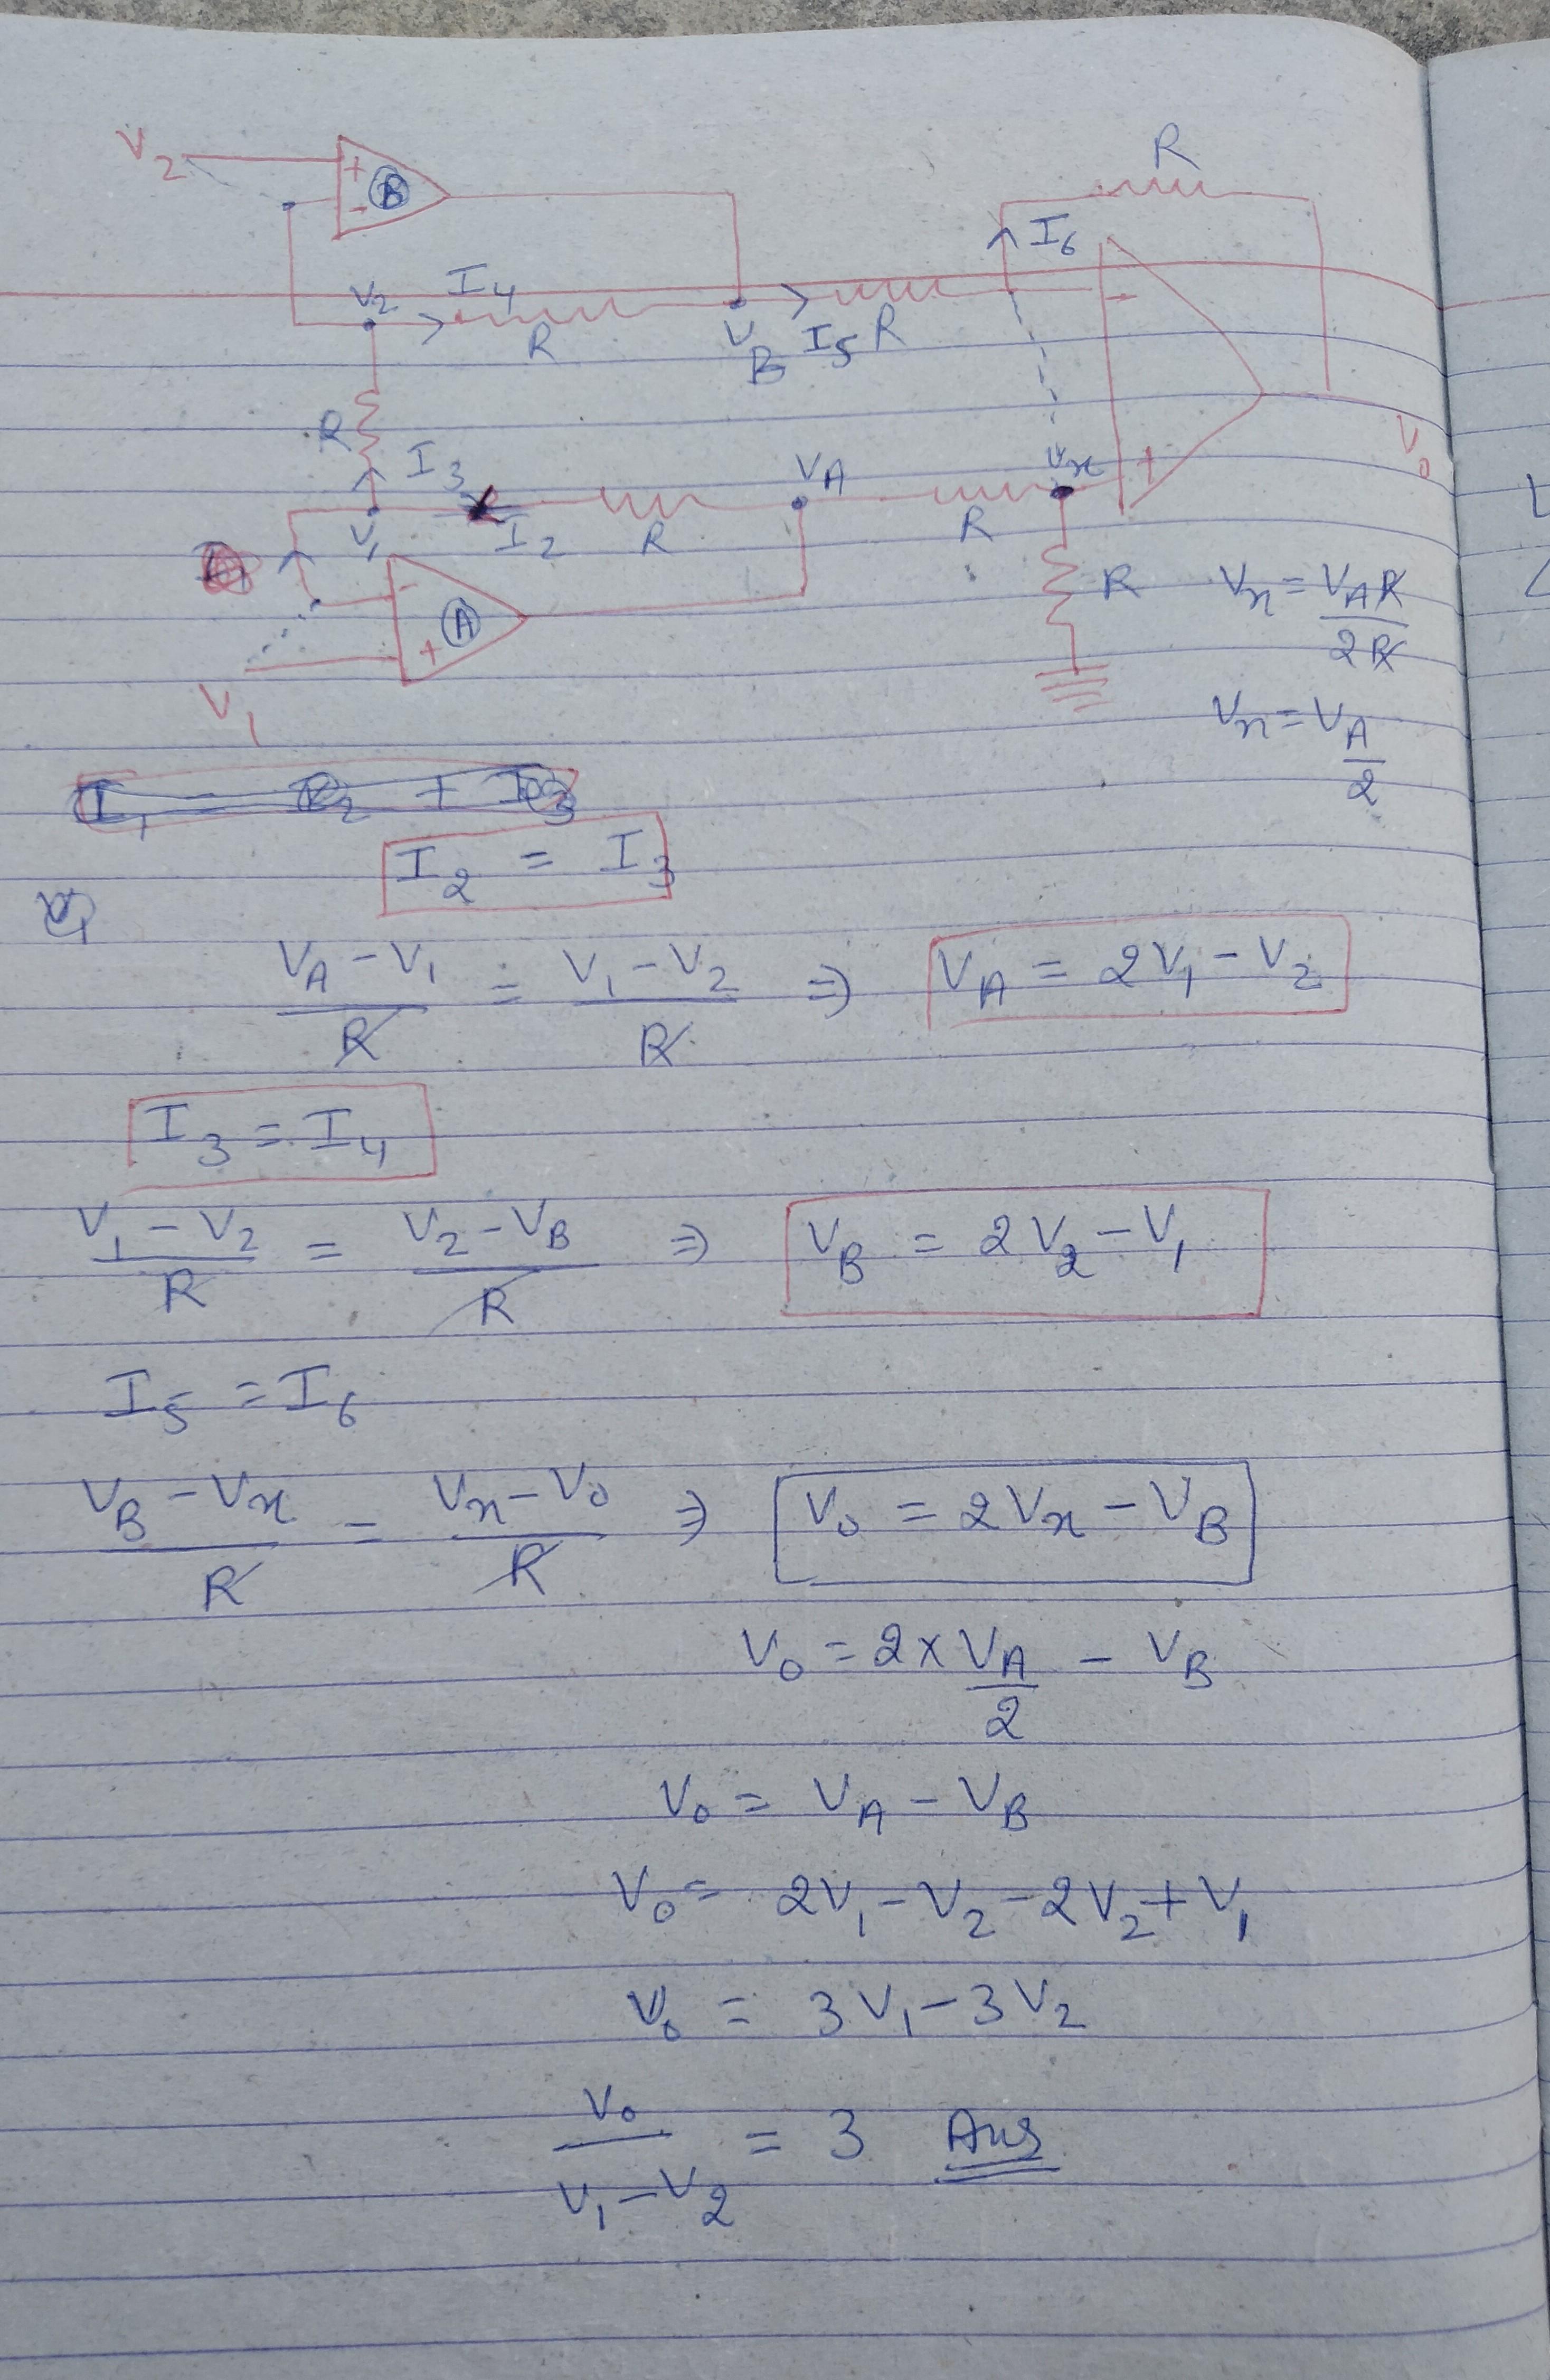 V2
+
-
B
R
I6
V2
I4
R
VB
I5
R
-
R
I3
VA
Vx
+
V0
V1
I2
R
R
R
-
+
A
V1
Vx = VA R / 2R
Vx = VA / 2
I1 = I2 + I3
I2 = I3
VA - V1 / R = V1 - V2 / R ⇒ VA = 2V1 - V2
I3 = I4
V1 - V2 / R = V2 - VB / R ⇒ VB = 2V2 - V1
I5 = I6
VB - Vx / R = Vx - V0 / R ⇒ V0 = 2Vx - VB
V0 = 2 x VA / 2 - VB
V0 = VA - VB
V0 = 2V1 - V2 - 2V2 + V1
V0 = 3V1 - 3V2
V0 / V1 - V2 = 3 Ans